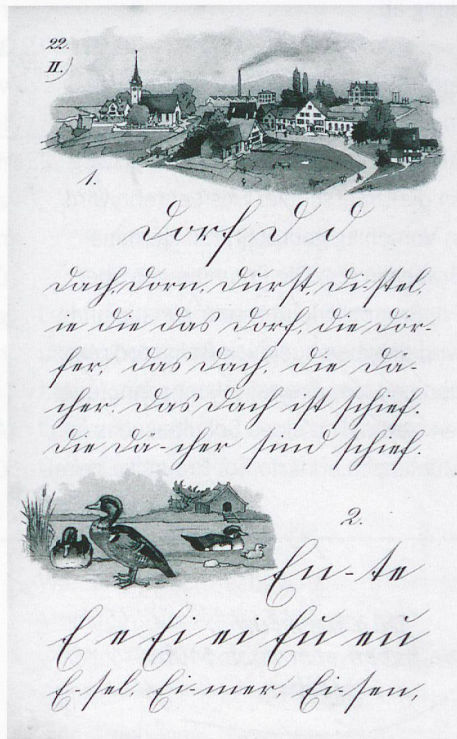 22.
II.)
1.
Dorf D d
Dach, Dorn, Durst, Di-stel,
ie die das Dorf, die Dör-
fer, das Dach, die Dä-
cher. Das Dach ist schief.
Die Dä-cher sind schief.
2.
En-te
E e Ei ei Eu eu
E-sel, Ei-mer, Ei-sen,